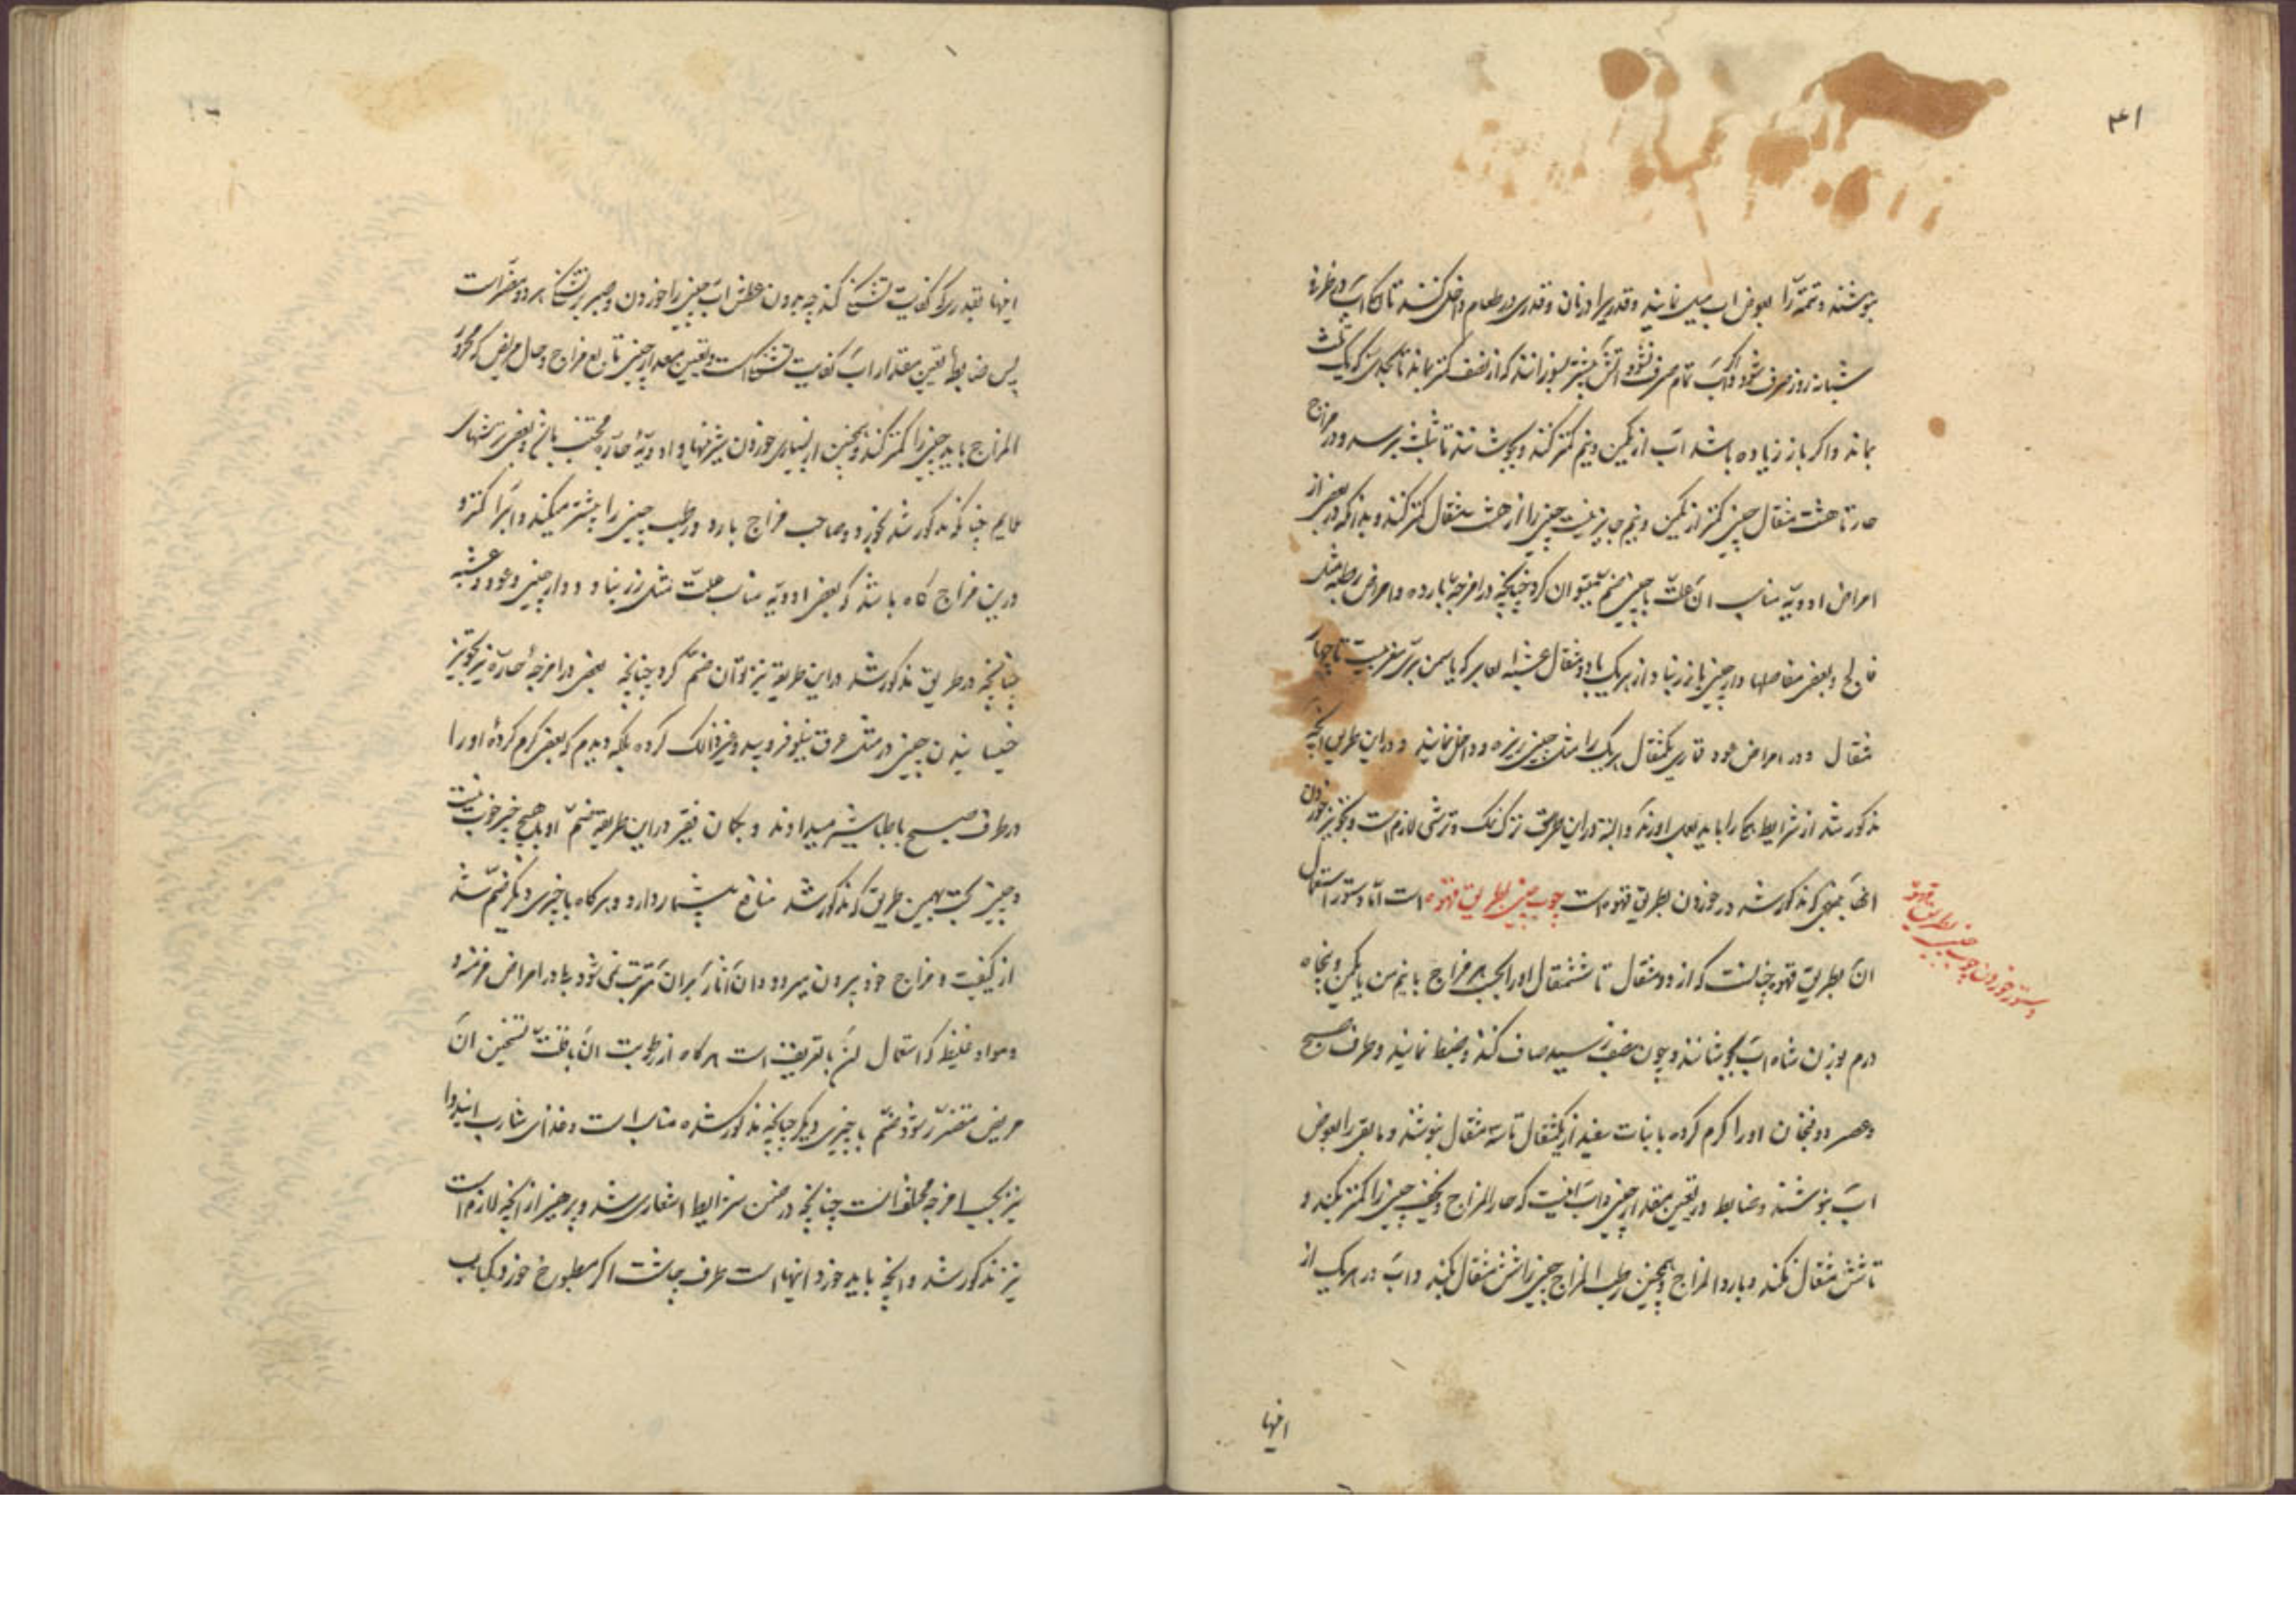 ۴۱
بنوشند و تتمه را بعوض اب میل نمایند و قدریرا در نان و قدری در طعام داخل کنند تا آن اب در عرض
شبانه روز صرف شود و اگر اب تمام صرف نشود اتش بیشتر بسوزانند که از نصف کمتر بماند تا بحدی که یک ثلث
بماند و اکر باز زیاده باشد اب از یکمن و نیم کمتر کنند و بجوشانند تا بثلث برسد و در مزاج
حار تا هشت مثقال چینی کمتر از یکمن و نیم جایز نیست چینی را از هشت مثقال کمتر کنند و بدانکه در بعض از
امراض ادویهٔ مناسب ان علت با چینی ضم میتوان کرد چنانچه در امزجهٔ بارده و امراض رطبه مثل
فالج و بعض مفاصلها دارچینی با زرنباد از هریک با دو مثقال عشبه
مثقال و در امراض عود قماری یکمثقال هریک را مثل چینی ریزه و داخل نمایند و در این طریق انچه
مذکور شد از شرایط بکار باید بعمل اورند و البته در این طریق ترک نمک و ترشی لازم است و تجویز خوردن
انها بنهجی که مذکور شد در خوردن بطریق قهوه است چوب چینی بطریق قهوه است اما دستور استعمال
ان بطریق قهوه چنانست که از دو مثقال تا ششمثقال او را بحسب مزاج با نیم من یا یکمن و پنجاه
درم بوزن شاه اب بجوشانند و چون بنصف رسید صاف کنند و ضبط نمایند و طرف صبح
و عصر دو فنجان او را کرم کرده با نبات سفید از یکمثقال تا سه مثقال بنوشند و مابقی را بعوض
اب بنوشند و ضابط در تعیین مقدار چینی و اب انیست که حار المزاج و نحیف چینی را کمتر بکند و
تا شش مثقال نکند و بارد المزاج و همچنین رطب المزاج چینی را شش مثقال بکند و اب در هریک از
دستور خوردن چوب چینی بطریق قهوه
اینها
اینها بقدری که کفایت تشنکی کند چه بدون عطش اب چینی را خوردن و صبر بر تشنکی هر دو مضر است
پس ضابطهٔ تعیین مقدار اب کفایت تشنکی است و تعیین مقدار چینی تابع مزاج و حال مریض که محرور
المزاج باید چینی را کمتر کند و همچنین از بسیاری خوردن شیرینیها و ادویهٔ حاره مجتنب باشد و بعض ترشیهای
ملایم چنانکه مذکور شد بخورد و صاحب مزاج بارد و رطب چینی را بیشتر میکند و اب را کمتر و
درین مزاج کاه باشد که بعض ادویهٔ مناسب علت مثل زرنباد و دارچینی و عود و عشبه
چنانچه در طریق مذکور شد در این طریقه نیز توان ضم کرد چنانچه بعضی در امزجهٔ حاره نیز تجویز
خیسانیدن چینی در مثل عرق نیلوفر و بید و غیر ذالک کرده بلکه دیدم که بعض کرم کردهٔ او را
در طرف صبح با طباشیر میدادند و بکمان فقیر در این طریقه ضم او با هیچ چیز خوب نیست
و چینی بحت بهمین طریق که مذکور شد منافع بیشمار دارد و هرکاه با چیزی دیکر ضم شد
از کیفیت و مزاج خود بیرون میرود و ان آثار بر ان مترتب نمی شود یا در امراض مزمنه و
و مواد غلیظ که استعمال ان با تعریف است هرکاه از رطوبت ان یا قلت تسخین ان
مریض متضرر شود ضم با چیزی دیکر چنانچه مذکور شد مناسب است و غذای شارب ایندوا
نیز بحسب امزجه مختلف است چنانچه در ضمن شرایط اشعاری شد و پرهیز از انچه لازم است
نیز مذکور شد و انچه باید خورد اینها است طرف چاشت اکر مطبوخ خورد کباب